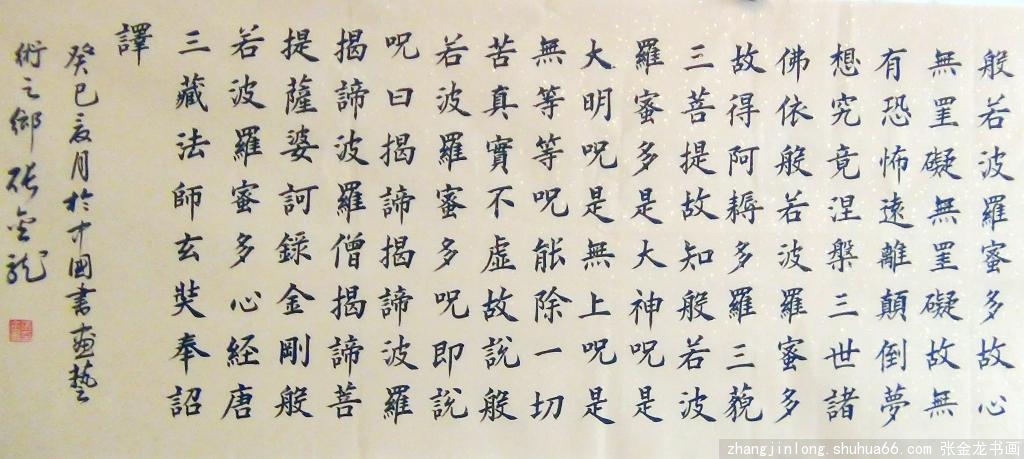 般若波羅蜜多故心
無罣礙無罣礙故無
有恐怖遠離顛倒夢
想究竟涅槃三世諸
佛依般若波羅蜜多
故得阿耨多羅三藐
三菩提故知般若波
羅蜜多是大神呪是
大明呪是無上呪是
無等等呪能除一切
苦真實不虛故說般
若波羅蜜多呪即說
呪曰揭諦揭諦波羅
揭諦波羅僧揭諦菩
提薩婆訶錄金剛般
若波羅蜜多心経唐
三藏法師玄奘奉詔
譯
癸巳夏月於中國書画藝
術之鄉張金龍
zhangjinlong.shuhua66.com 张金龙书画